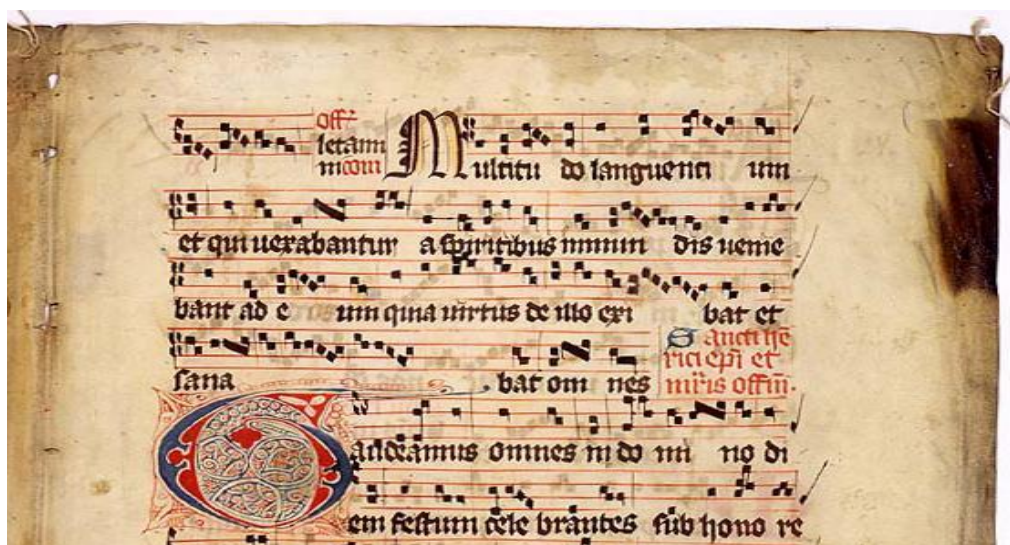 Off̄
letamī
m com Multitu do languenti um
et qui uexabantur a spiritibus inmun dis uenie
bant ad e um quia uirtus de illo exi bat et
sana bat om nes
Sancti hē
rici epī et
mr̄is offīm.
Gaudeamus omnes in do mi no di
em festum cele brantes sub hono re